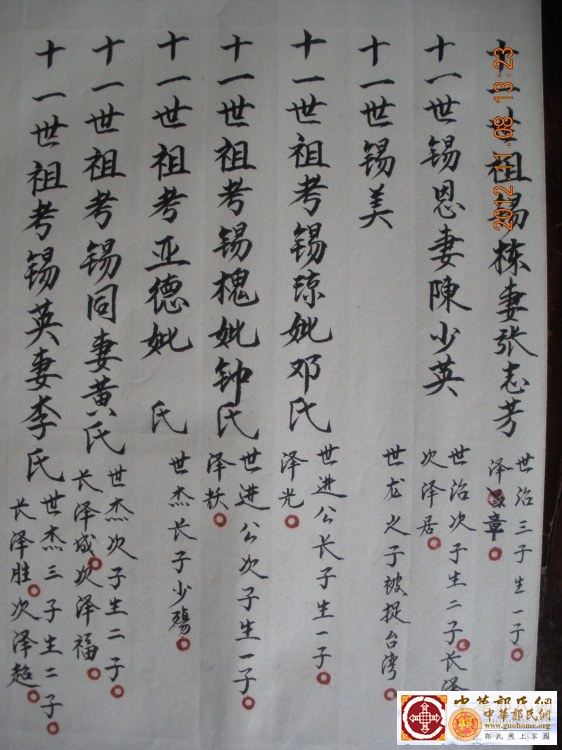 十一世祖锡栋妻张志芳
世治三子生一子
泽章
十一世锡恩妻陳少英
世治次子生二子长泽
次泽居
十一世锡美
世龙之子被捉台湾
十一世祖考锡琼妣邓氏
世进公长子生一子
泽光
十一世祖考锡槐妣钟氏
世进公次子生一子
泽扶
十一世祖考亚德妣 氏
世杰长子少殤
十一世祖考锡同妻黄氏
世杰次子生二子
长泽成次泽福
十一世祖考锡英妻李氏
世杰三子生二子
长泽胜次泽超
2012 11 08 13:23
中华郭氏網
中華郭氏網
www.guohome.org
郭氏网上家園